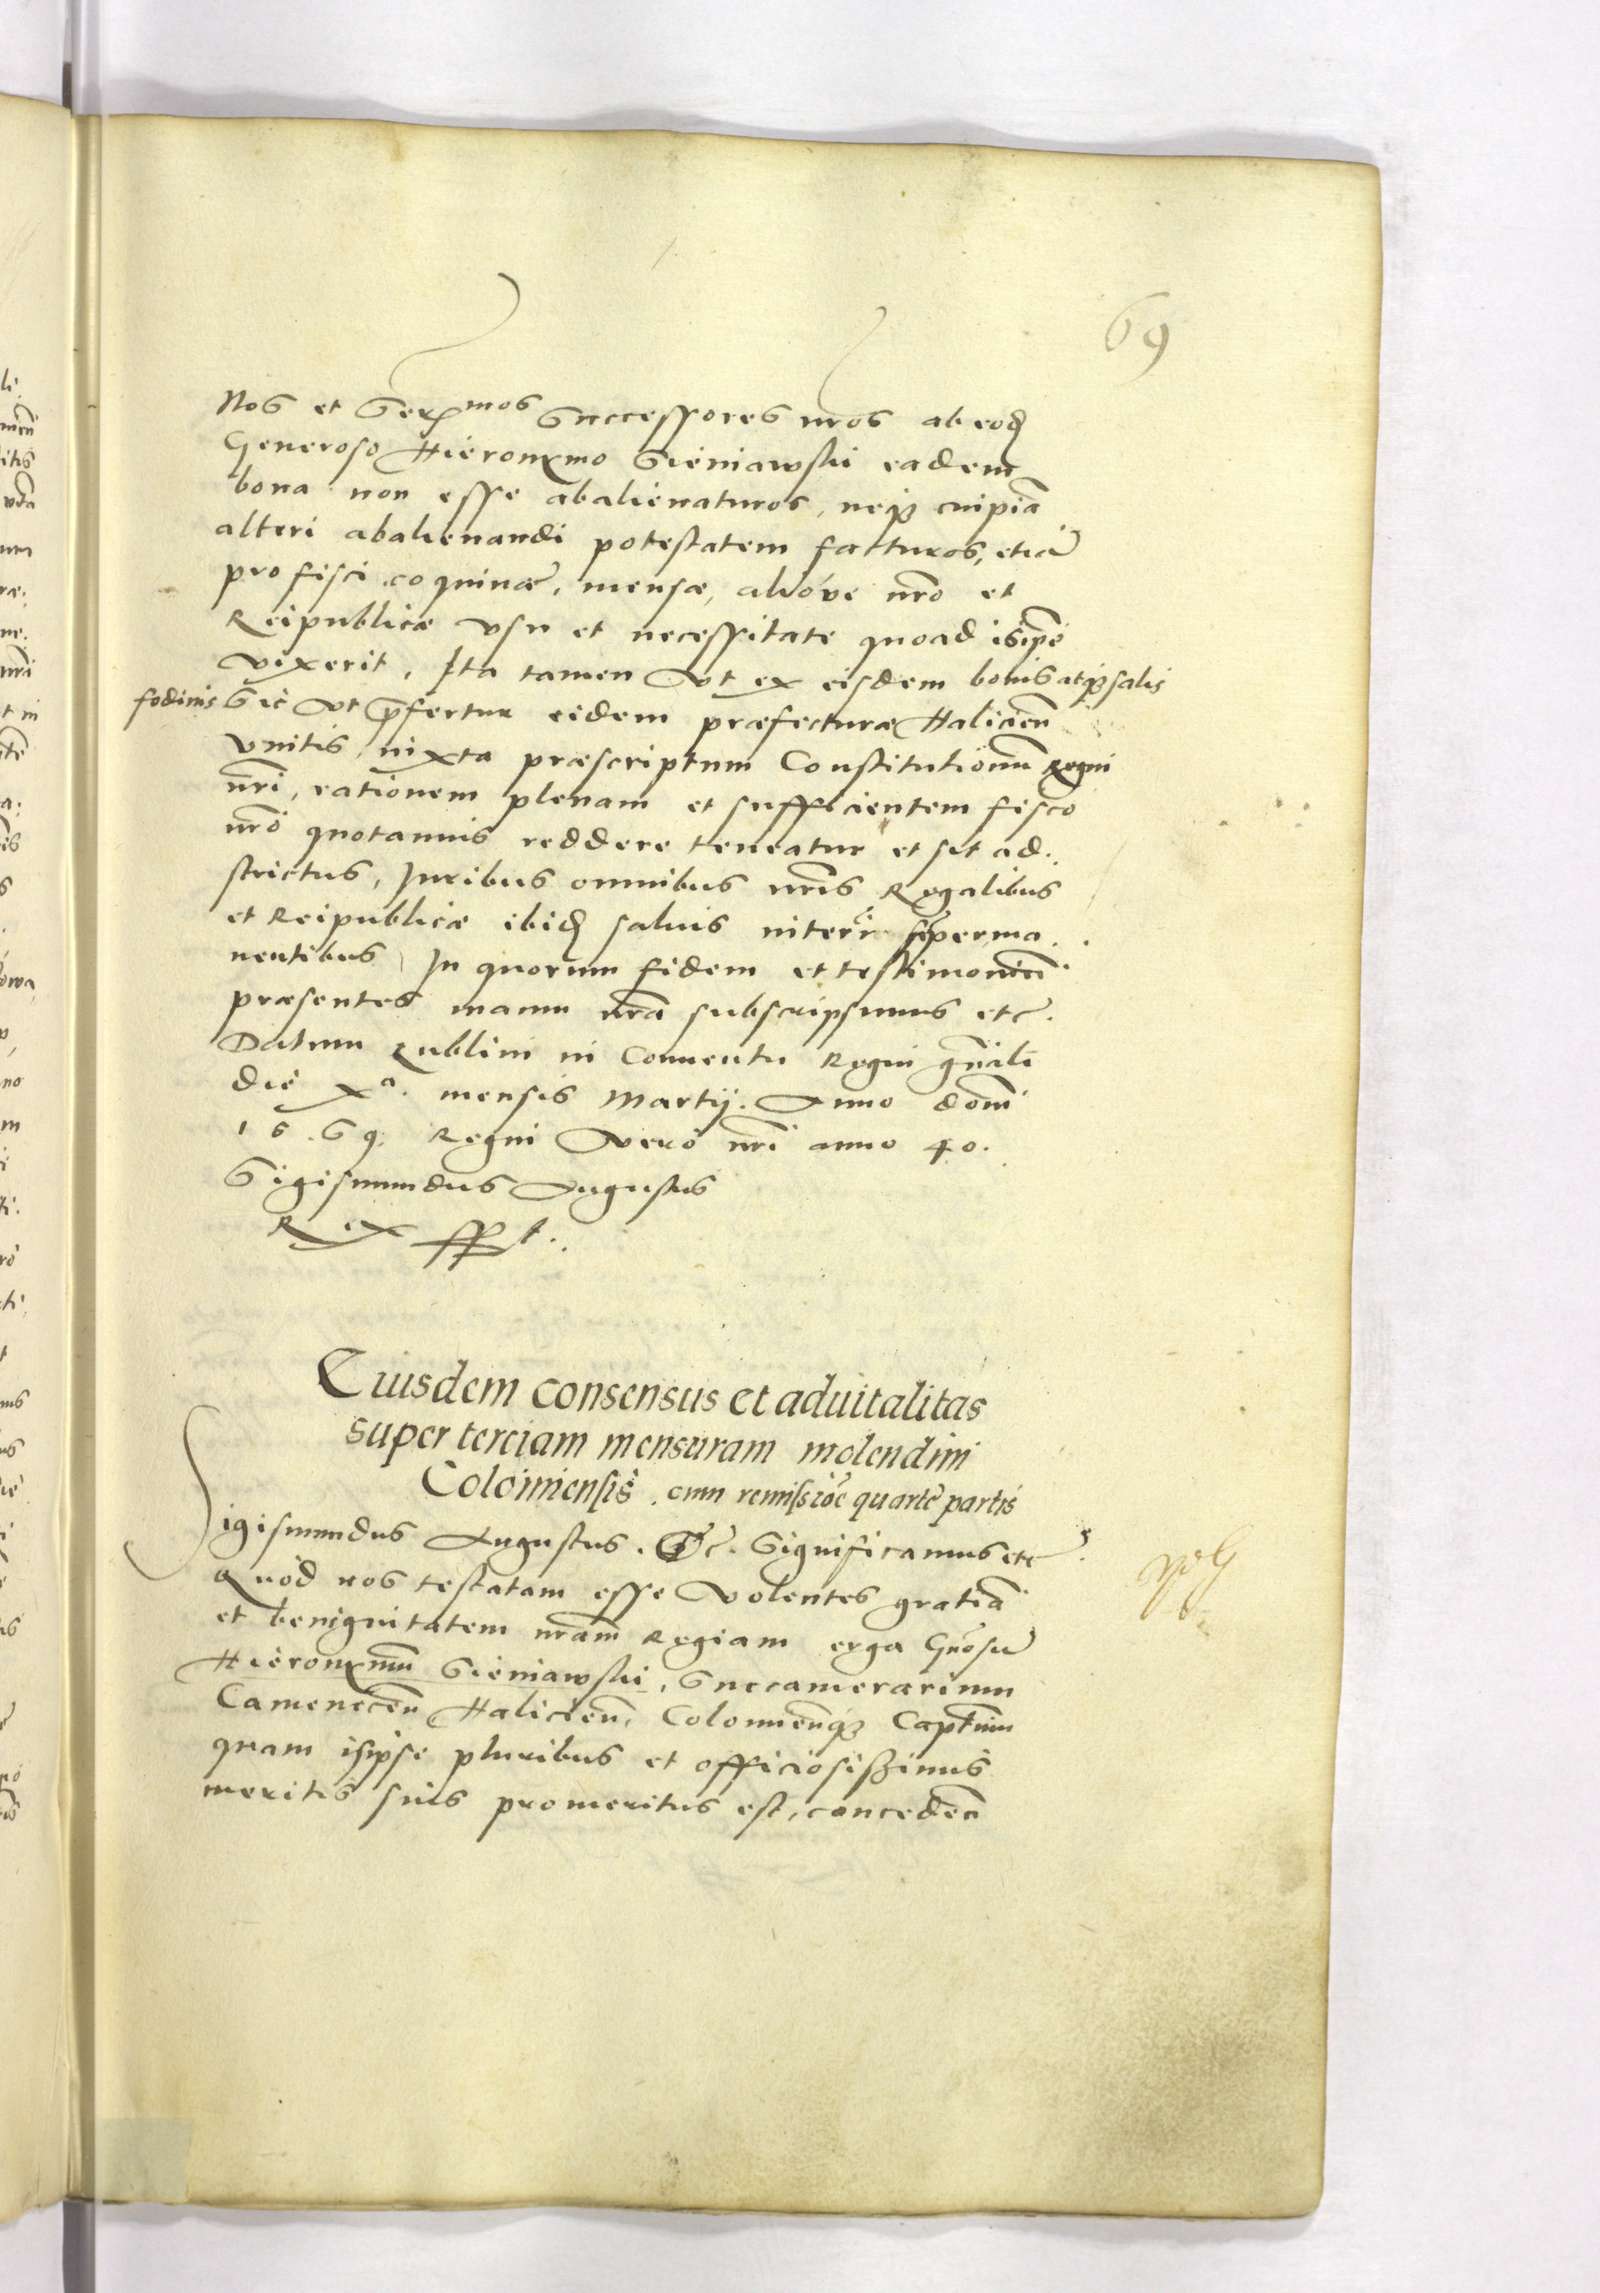 69
Nos et Ser^mos Successores nr̃os ab eod̃
Generoso Hieronymo Sieniawski eadem
bona non esse abalienaturos, neq3 cuipiã
alteri abalienandi potestatem facturos, etiã
pro fisci coquinæ, mensæ, alióve nr̃o et
Reipublicæ vsu et necessitate quoad is ip̃e
vixerit, Ita tamen vt ex eisdem bonis atq3 salis
fodinis sic vt p̃fertur eidem præfecturæ Halicieñ
vnitis, iuxta præscriptum Constitutionũ Regni
nr̃i, rationem plenam et sufficientem fisco
nr̃o quotannis reddere teneatur et sit ad.
strictus, Juribus omnibus nr̃is Regalibus
et Reipublicæ ibid̃ saluis perma.
nentibus In quorum fidem et testimoniũ
præsentes manu nr̃a subscripsimus etc.
Datum Lublini in Conuentu Regni gñali
die x^a. mensis Martij. Anno domi
1569. Regni vero nr̃i anno 40.
Sigismundus Augustus
Rex sspt.
Eiusdem consensus et aduitalitas
super terciam mensuram molendini
Colomiensis, cum remissiõe quarte partis
Sigismundus Augustus. Etc. Significamus etc.
Quòd nos testatam esse volentes gratiã
et benignitatem nr̃am Regiam erga Gñosũ
Hieronymũ Sieniawski, Succamerarium
Cameneceñ Halicieñ, Colomieñq3 Captũm
quam is ipse pluribus et officiosissimis
meritis suis promeritus est, concedeñ